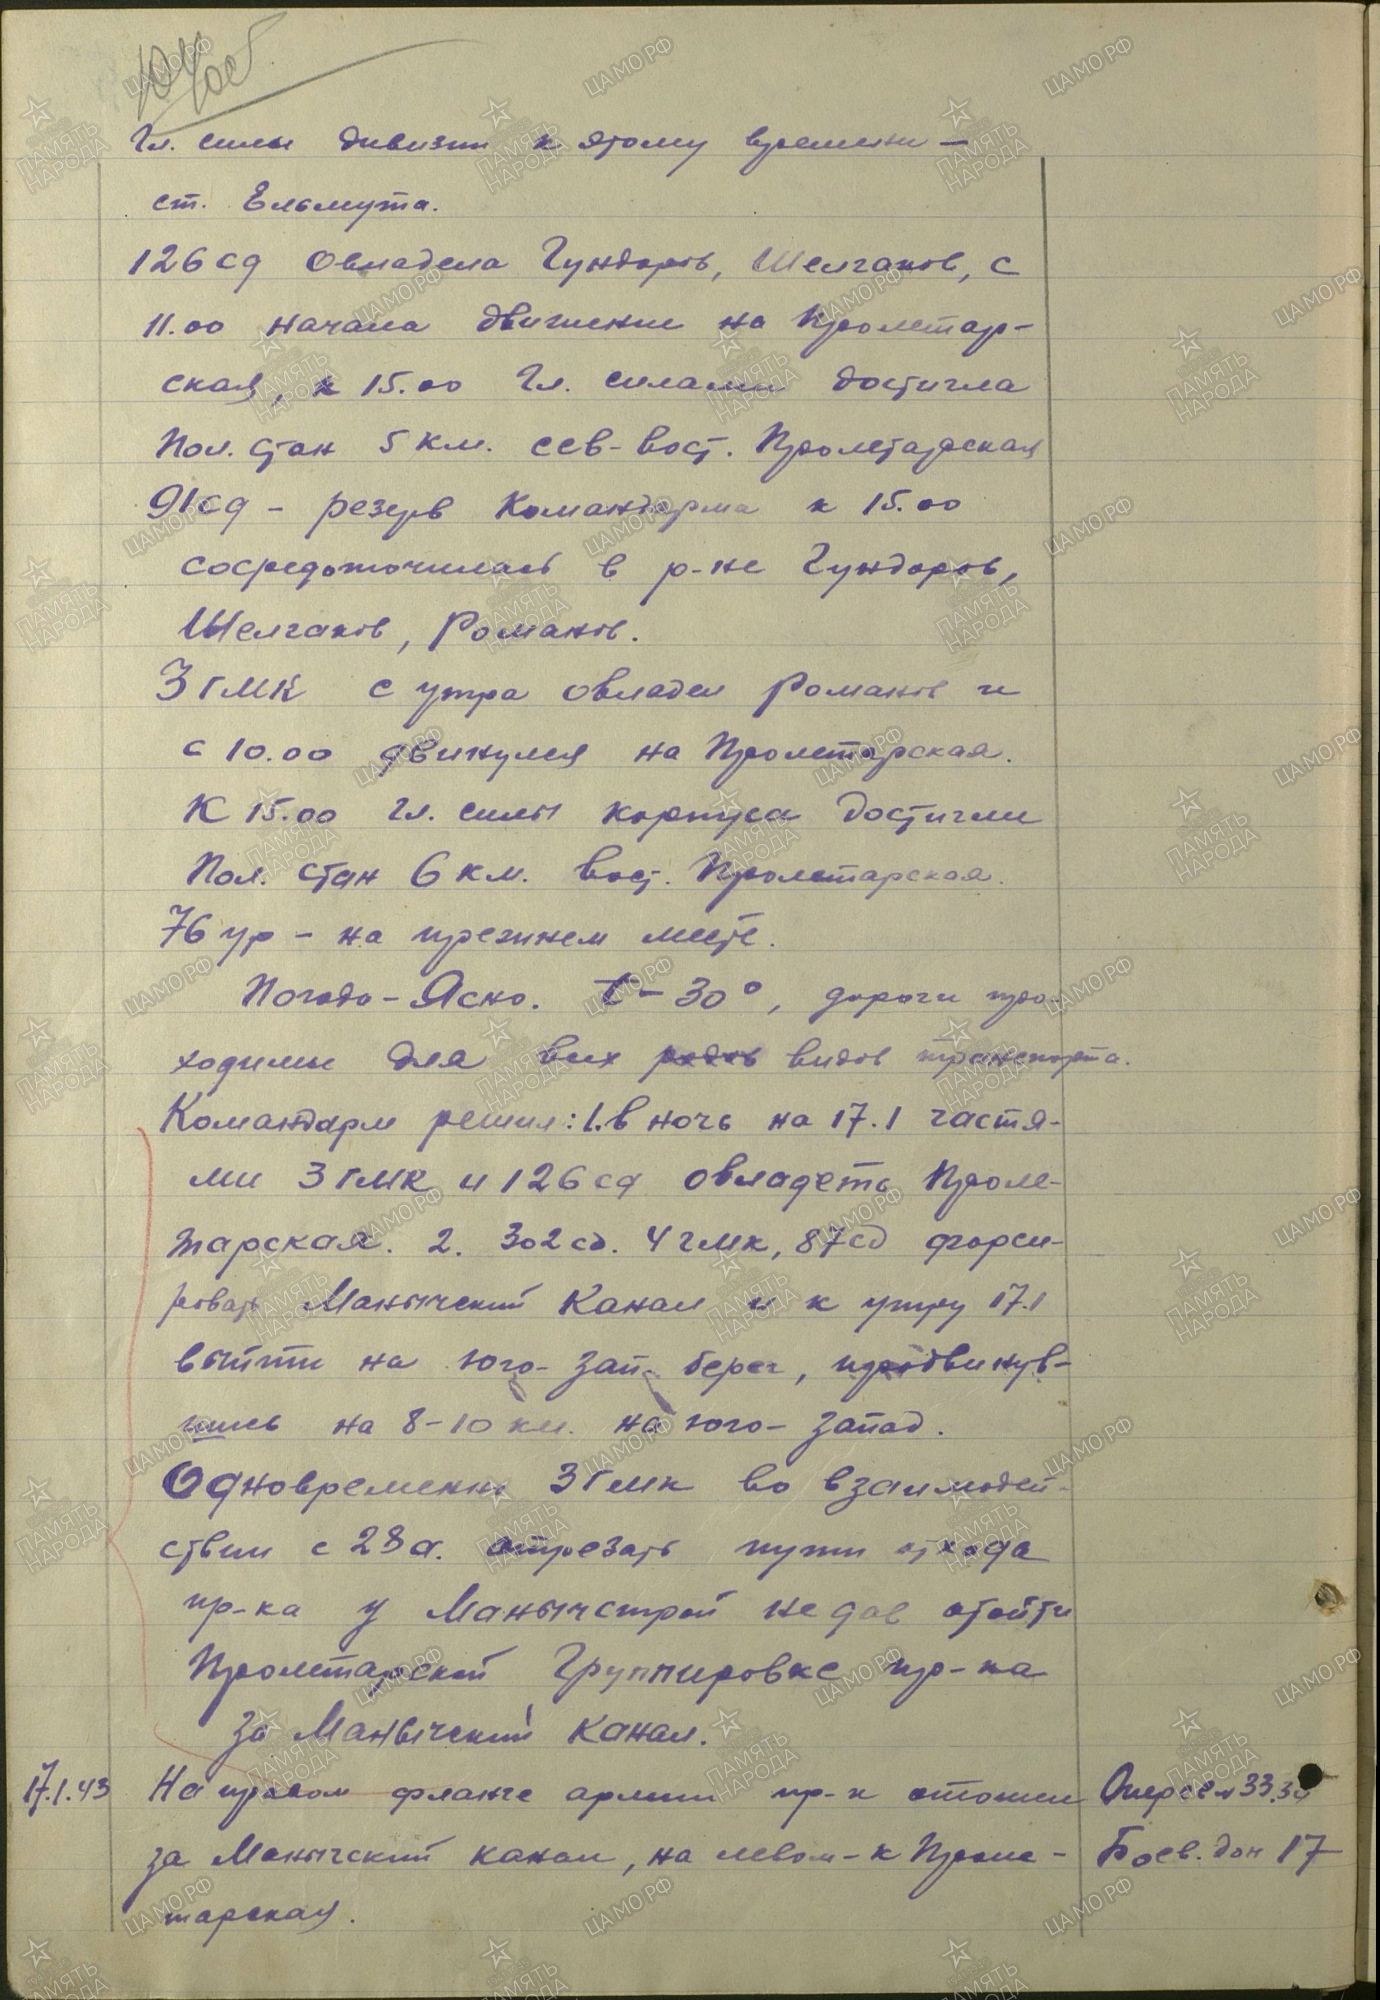 Гл. силы дивизии к этому времени –
ст. Ельмута.
126 сд овладела Гундоров, Шелгаков, с
11.00 начала движение на Пролетар-
ская, к 15.00 Гл. силами достигла
Пол. стан 5 км. сев-вост. Пролетарская
91 сд – резерв Командарма к 15.00
сосредоточилась в р-не Гундоров,
Шелгаков, Романов.
3 ГМК с утра овладел Романов и
с 10.00 двинулся на Пролетарская.
К 15.00 Гл. силы корпуса достигли
Пол. стан 6 км. вост. Пролетарская.
76 ур – на прежнем месте.
Погода – Ясно. t – 30°, дороги про-
ходимы для всех родов видов транспорта.
Командарм решил: 1. в ночь на 17.1 частя-
ми 3 ГМК и 126 сд овладеть Проле-
тарская. 2. 302 сд. 4 гмк, 87 сд форси-
ровать Манычский Канал и к утру 17.1
выйти на юго-зап. берег, продвинув-
шись на 8–10 км. на юго-запад.
Одновременно 3 Гмк во взаимодей-
ствии с 28 а. отрезать пути отхода
пр-ка у Манычстрой не дав отойти
Пролетарской Группировке пр-ка
за Манычский Канал.
17.1.43 На правом фланге армии пр-к отошел Оперсв 33.34
за Манычский канал, на левом – к Проле- Боев. дон 17
тарская.
ПАМЯТЬ НАРОДА
ЦАМО.РФ